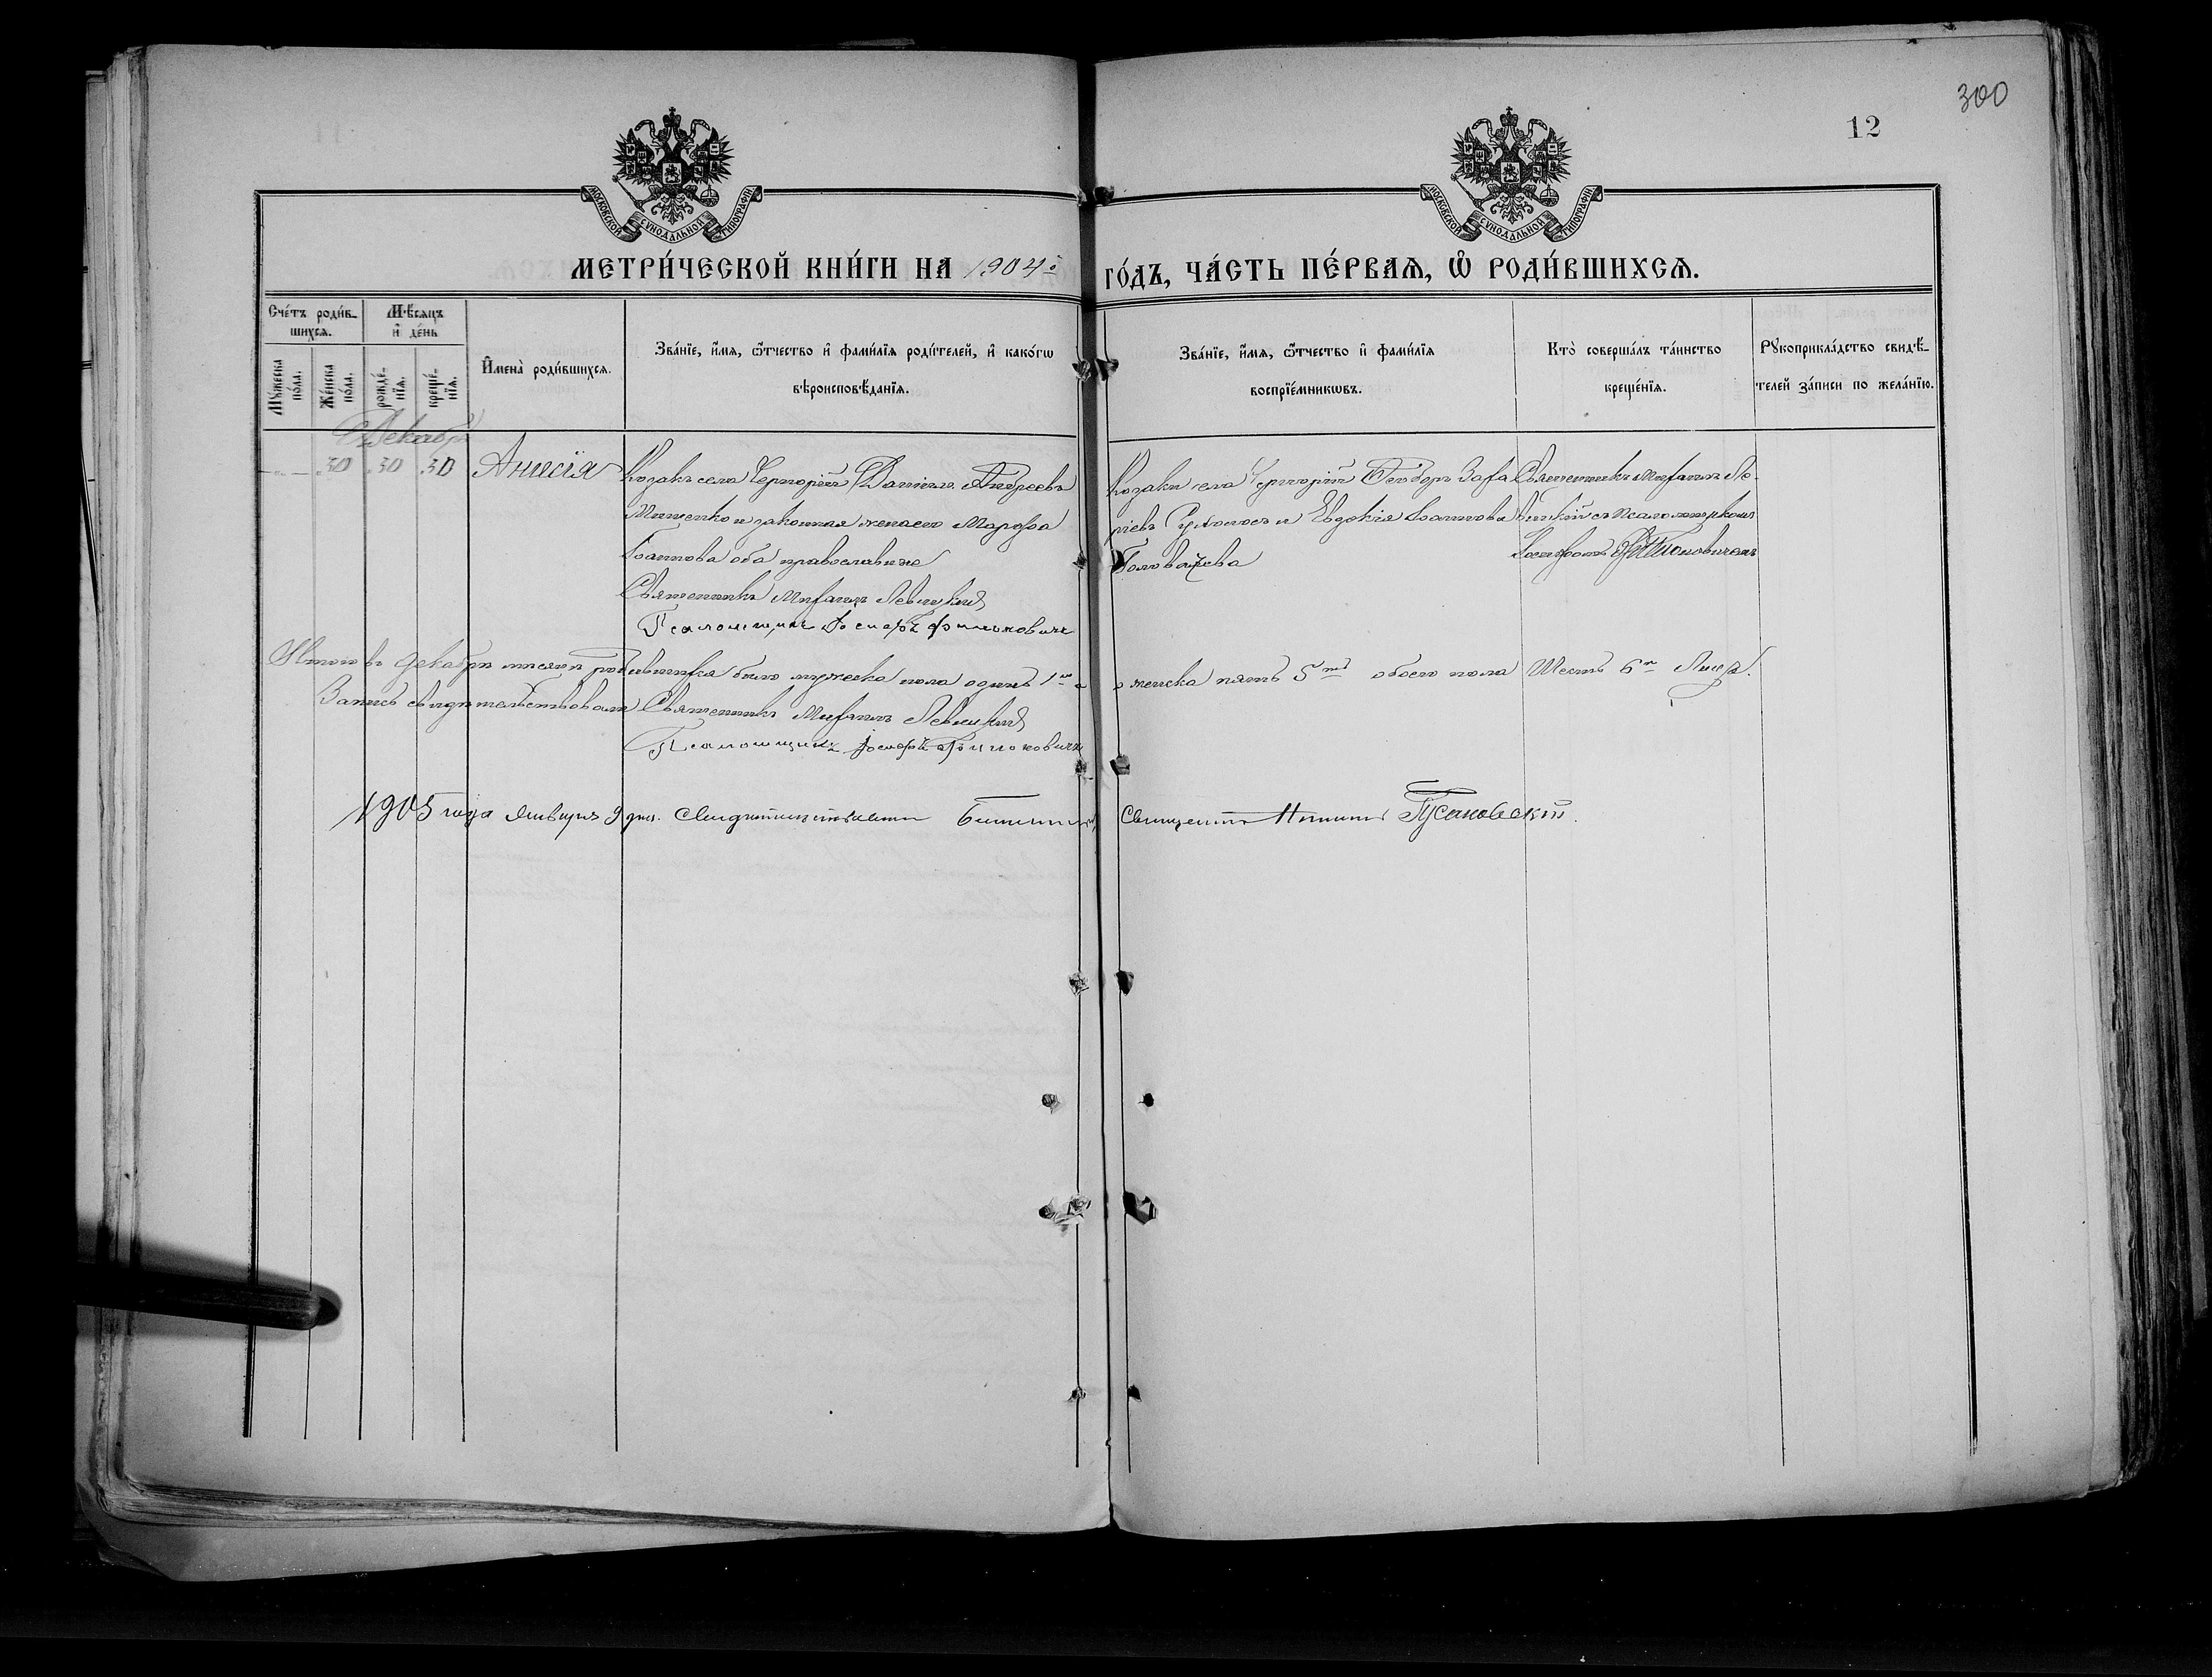 300
12
МОСКОВСКОЙ СѴНОДАЛЬНОЙ ТИПОГРАФІИ
МОСКОВСКОЙ СѴНОДАЛЬНОЙ ТИПОГРАФІИ
МЕТРИ́ЧЕСКОЙ КНИ́ГИ НА 1904й ГО́ДЪ, ЧА́СТЬ ПЕ́РВАѦ, Ѽ РОДИ́ВШИХСѦ.
Сче́тъ роди́в-
шихсѧ.
Мꙋ́жеска по́ла.
Же́нска по́ла.
Мѣ́сяцъ
и҆ де́нь
рожде́-
нїѧ.
креще́-
нїѧ.
И҆мена̀ роди́вшихсѧ.
Зва́нїе, и҆́мѧ, ѻ҆́тчество и҆ фами́лїѧ роди́телей, и҆ како́гѡ
вѣроисповѣ́данїѧ.
Зва́нїе, и҆́мѧ, ѻ҆́тчество и҆ фами́лїѧ
воспрїе́мникѡвъ.
Кто̀ соверша́лъ та́инство
креще́нїѧ.
Рꙋкоприкла́дство свидѣ́-
телей за́писи по жела́нїю.
Декабрь
30 30 30 Анисія
Козакъ села Черторій Даніилъ Андреевъ
Мищенко и законная жена его Марѳа
Іоаннова оба православные
Священникъ Михаилъ Левицкій
Псаломщикъ Іосифъ
Козаки села Черторій Ѳеодоръ Заха
ріевъ и Евдокія Іоаннова
Головачева
Священникъ Михаилъ Ле-
вицкій съ Псаломщикомъ
Іосифомъ
Итого въ Декабрѣ мѣсяцѣ родившихся было мужеска пола одинъ 1 а женска пять 5 обоего пола Шесть 6 Лицъ.
Запись свидѣтельствовали Священникъ Михаилъ Левицкій
Псаломщикъ Іосифъ
1905 года Января 9 дня. Священникъ